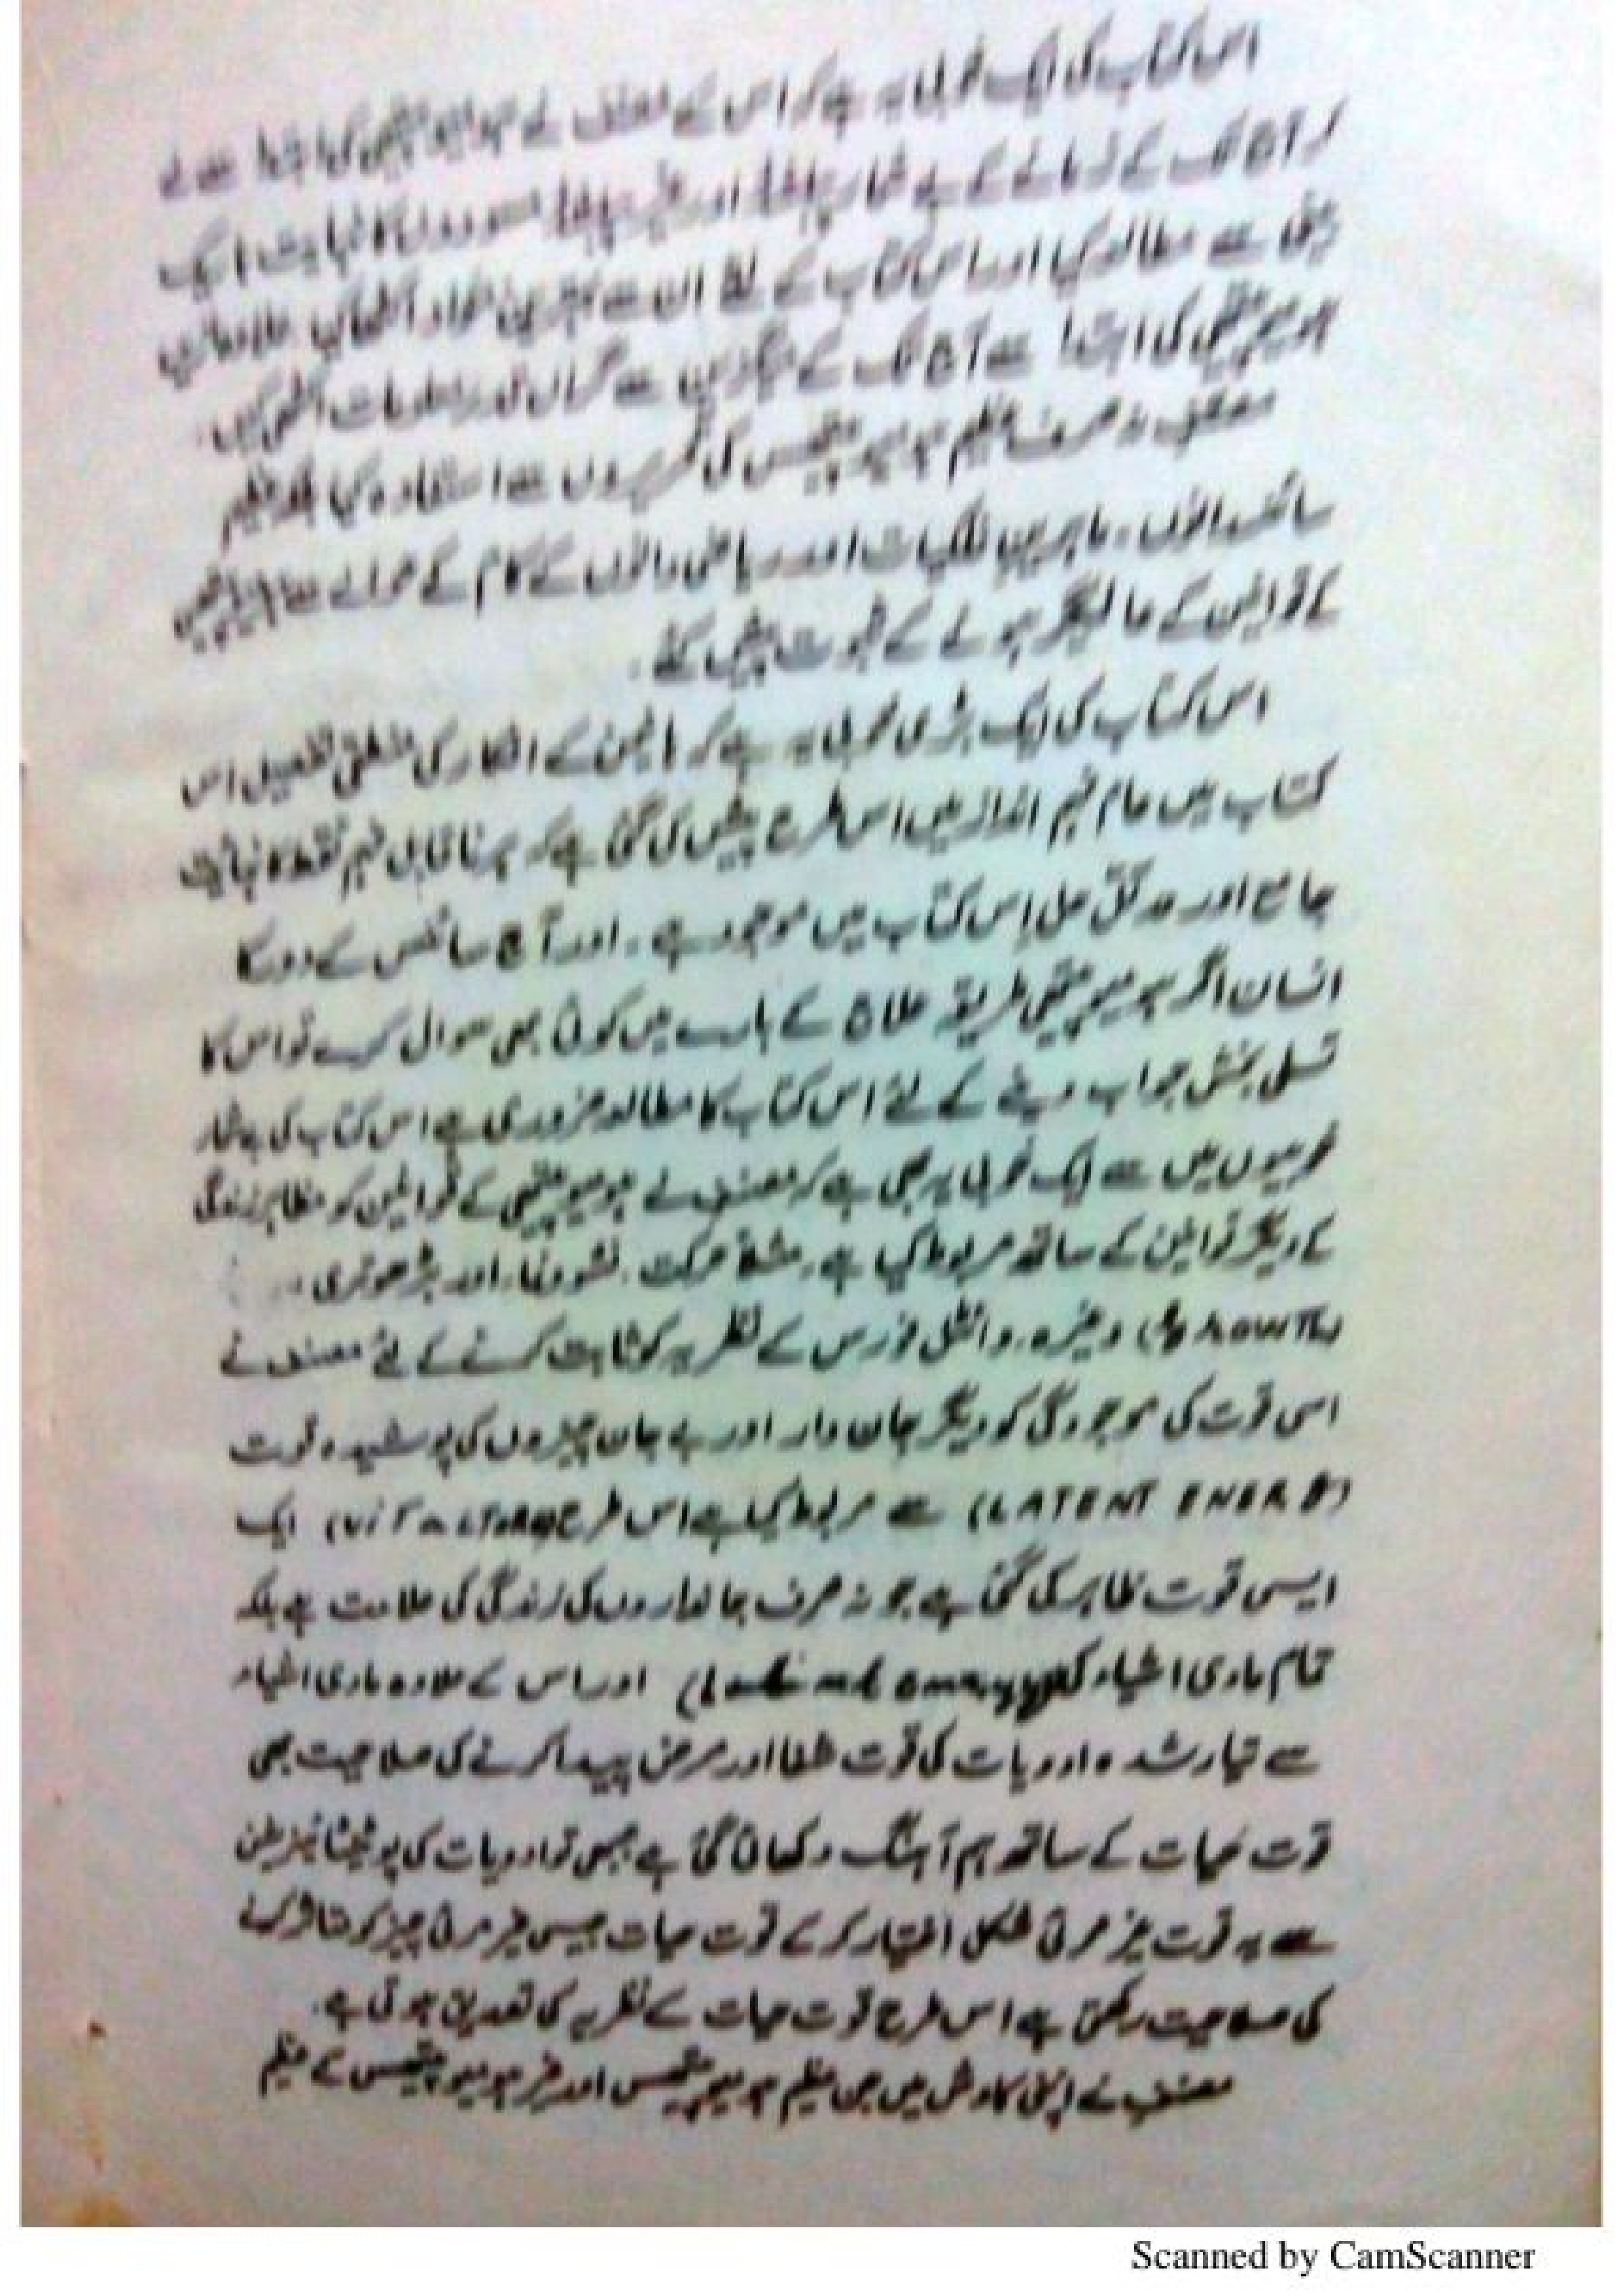 اس کتاب کی ایک خوبی یہ ہے کہ اس کے مصنف نے ہومیوپیتھی کی ابتدا سے لے
کر آج تک کے زمانے کے بے شمار اور غیر مسودوں کا نہایت
سے مطالعہ کیا اور اس کتاب کے لئے ان سے بہترین مواد اکٹھا کیا علاوہ ازیں
ہومیوپیتھی کی ابتدا سے آج تک کے میگزین سے گراں قدر معلومات اکٹھی کیں۔
مصنف نہ صرف عظیم ہومیوپیتھس کی تحریروں سے استفادہ کیا بلکہ عظیم
سائنسدانوں۔ ماہرین فلکیات اور ریاضی دانوں کے کام کے حوالے سے ہومیوپیتھی
کے قوانین کے عالمگیر ہونے کے ثبوت پیش کئے۔
اس کتاب کی ایک بڑی خوبی یہ ہے کہ کے افکار کی منطقی تفصیل اس
کتاب میں عام فہم انداز میں اس طرح پیش کی گئی ہے کہ ہر ناقابل فہم نقطہ کا نہائت
جامع اور مدلل حل اِس کتاب میں موجود ہے۔ اور آج سائنس کے دور کا
انسان اگر ہومیوپیتھی طریقہ علاج کے بارے میں کوئی بھی سوال کرے تو اس کا
تسلی بخش جواب دینے کے لئے اس کتاب کا مطالعہ ضروری ہے اس کتاب کی بے شمار
خوبیوں میں سے ایک خوبی یہ بھی ہے کہ مصنف نے ہومیوپیتھی کے قوانین کو مظاہر زندگی
کے دیگر قوانین کے ساتھ مربوط کیا ہے۔ مثلاً حرکت۔ نشوونما۔ اور بڑھوتری
(GROWTH) وغیرہ۔ وائٹل فورس کے نظریہ کو ثابت کرنے کے لئے مصنف نے
اسی قوت کی موجودگی کو دیگر جان دار اور بے جان چیزوں کی پوشیدہ قوت
(LATENT ENERGY) سے مربوط کیا ہے اس طرح ایک
ایسی قوت ظاہر کی گئی ہے جو نہ صرف جانداروں کی زندگی کی علامت ہے بلکہ
تمام مادی اشیاء کی اور اس کے علاوہ مادی اشیاء
سے تیار شدہ ادویات کی قوت شفا اور مرض پیدا کرنے کی صلاحیت بھی
قوت حیات کے ساتھ ہم آہنگ دکھائی گئی ہے جبھی تو ادویات کی پوٹینشائیزیشن
سے یہ قوت غیر مرئی شکل اختیار کر کے قوت حیات جیسی غیر مرئی چیز کو متاثر کرنے
کی صلاحیت رکھتی ہے اس طرح قوت حیات کے نظریہ کی تصدیق ہوتی ہے۔
مصنف نے اپنی کاوش میں جن عظیم ہومیوپیتھس اور غیر ہومیوپیتھس کے عظیم
Scanned by CamScanner